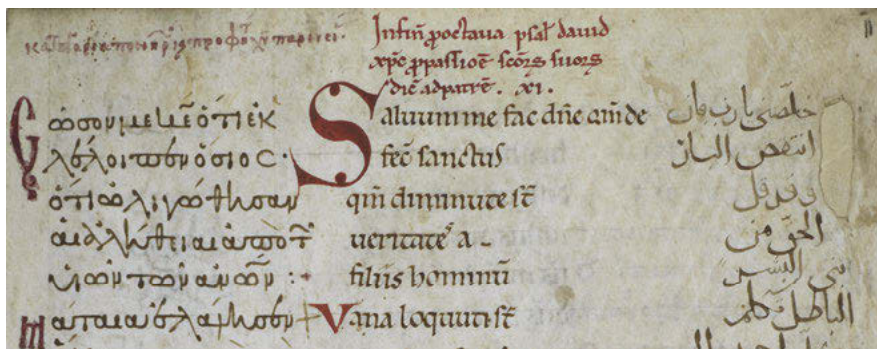 Infinē ꝓ octaua psal̄ dauid
xp̄c ꝓ passioē sc̄oꝝ suoꝝ
dic̄ ad patrē. XI.
Ϲωσον με κ̄ε ὁτι ἐκ
λέλοιπεν ὅσιος·
ὅτι ὠλιγώθησαν
αι ἀλήθιαι ἀπὸ τ̄
υἱῶν τῶν ανω̅ν :·
ματαια ἐλάλησεν
Saluum me fac dn̄e qm̄ de
fec̄ sanctus
qm̄ diminute st̄
ueritateˢ a
filiis hominū
Vana loquuti st̄
خلصني يارب فان
انتقص البار
وقد قل
الحق من
بني البشر
الباطل تكلم